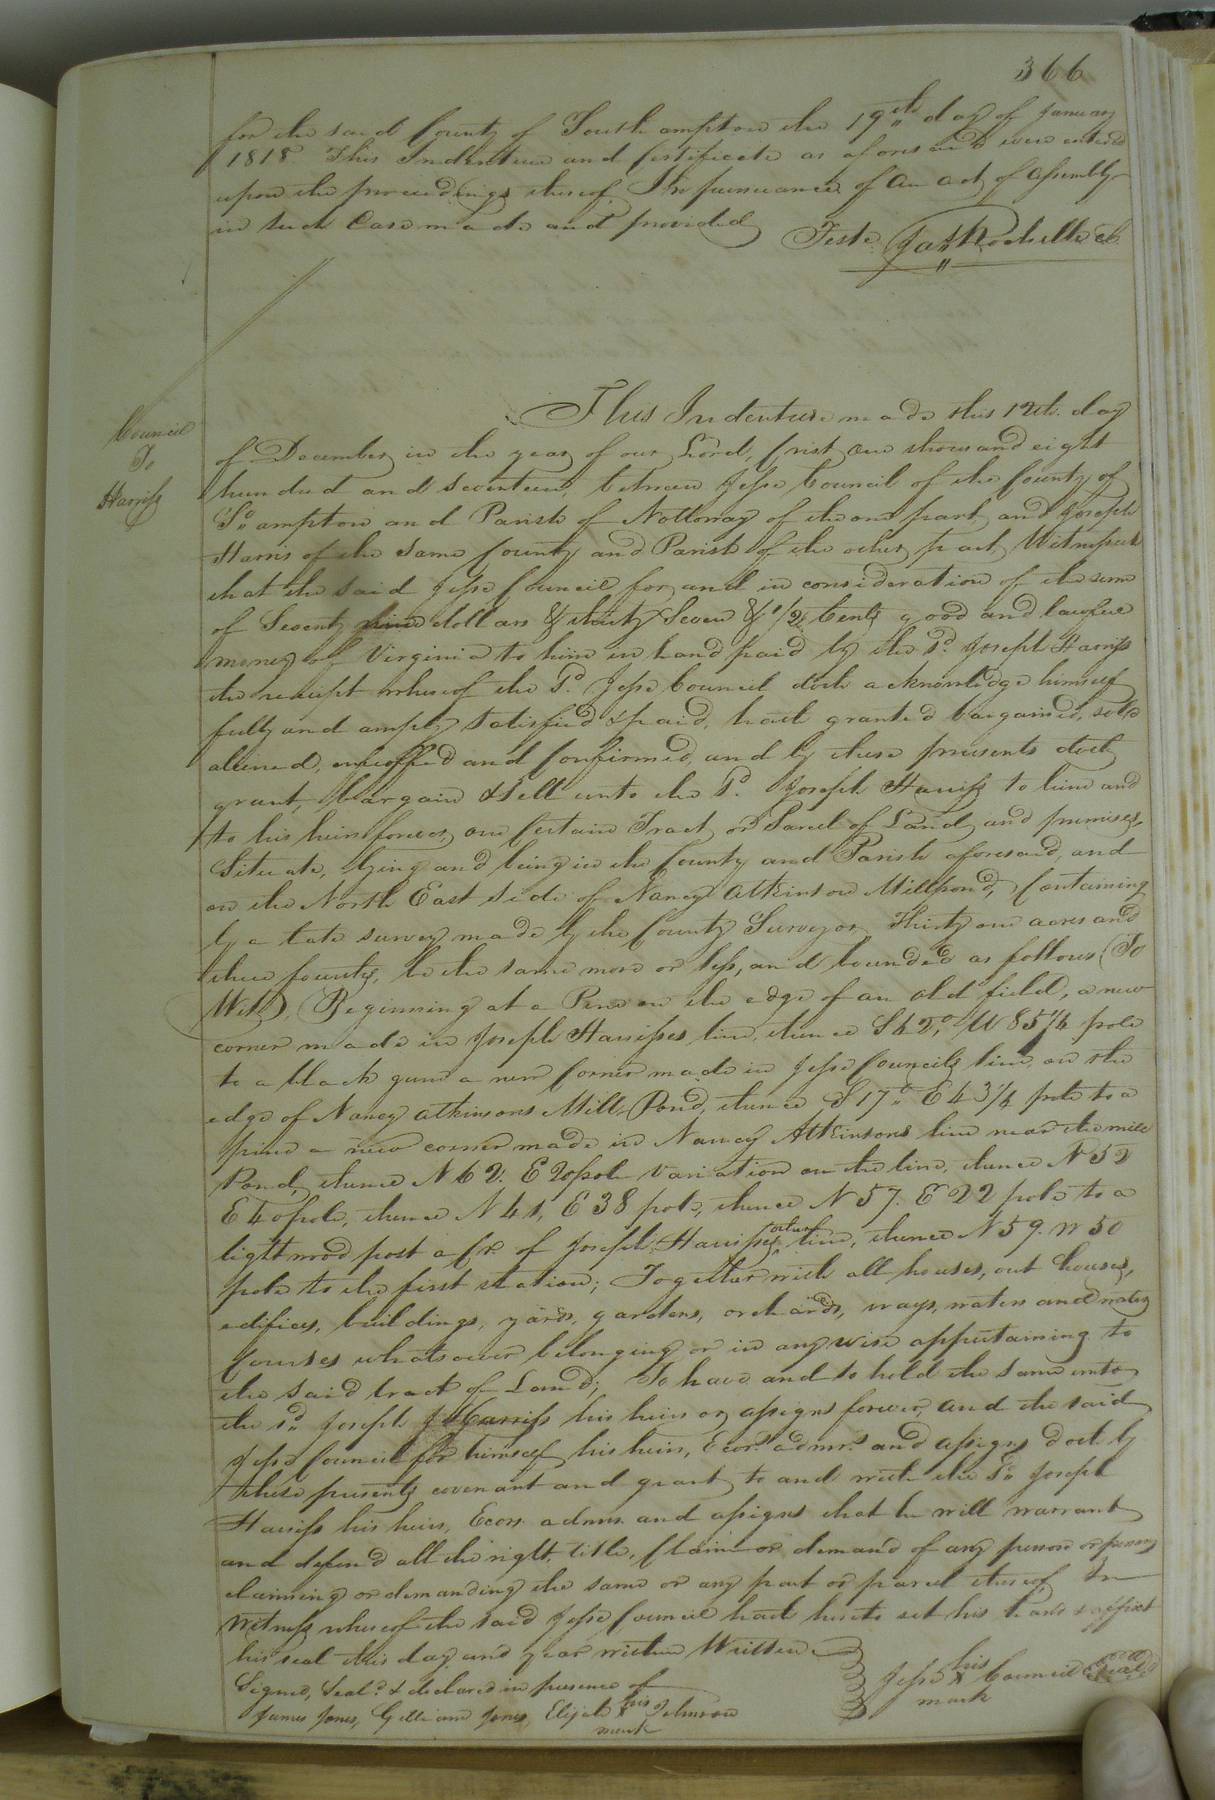 366
for the said County of Southampton the 19th day of January
1818 This Indenture and Certificate as aforesaid were entered
upon the proceedings thereof, In pursuance of an act of Assembly
in such Case made and provided Teste Jas Rochelle Cl.
Council
To
Harriss
This Indenture made this 12th. day
of December in the year of our Lord, Crist one thousand eight
hundred and seventeen, between Jesse Council of the County of
So. ampton and Parish of Nottoway of the one part and Joseph
Harris of the same County and Parish of the other part, Witnesseth
that the said Jesse Council for and in consideration of the sum
of Seventy nine dollars & thirty Seven & 1/2 Cents good and lawful
money of Virginia to him in hand paid by the sd. Joseph Harriss
the receipt whereof the sd. Jesse Council doth acknowledge himself
fully and amply satisfied & paid, hath granted bargained, sold
aliened, enfeoffed and Confirmed, and by these presents doth
grant, bargain & sell unto the sd. Joseph Harriss to him and
to his heirs forever, one Certain Tract or Parcel of Land and premises,
Situate, lying and being in the County and Parish aforesaid, and
on the North East side of Nancy Atkinson Millpond, Containing
by a late survey made by the County Surveyor Thirty one acres and
three fourths, be the same more or less, and bounded as follows (To
Wit) Beginning at a Pine on the edge of an old field, a new
corner made in Joseph Harrisses line, thence S 42° W 85 1/4 pole
to a black gum a new Corner made in Jesse Councils line, on the
edge of Nancy Atkinsons Mill Pond, thence S 17° E 43 1/4 pole to a
pine a new corner made in Nancy Atkinsons line near the mill
Pond, thence N 62. E 20 pole variation on the line, thence N 52
E 40 pole, thence N 41, E 38 pole, thence N 57. E 22 pole to a
lightwood post a Cr. of Joseph Harrisses other line, thence N 59. W 50
pole to the first station; Together with all houses, out houses,
edifices, buildings, yards, gardens, orchards, ways, waters and water
Courses whatsoever belonging or in any wise appertaining to
the said tract of Land; To have and to hold the same unto
the sd. Joseph Harriss his heirs or assigns forever, and the said
Jesse Council for himself his heirs, Ecors. admrs. and assigns doth by
these presents covenant and grant to and with the sd. Joseph
Harriss his heirs, Ecors. admrs. and assigns that he will warrant
and defend all the right, title, Claim or demand of any person or persons
claiming or demanding the same or any part or parcel thereof, In
Witness whereof the said Jesse Council hath hereto set his hand & affixt
his seal this day and year within Written
Signed, Seal'd & declared in presence of
Jesse his X mark Council (Seal)
James Jones, Gilliam Jones, Elijah his X mark Johnson